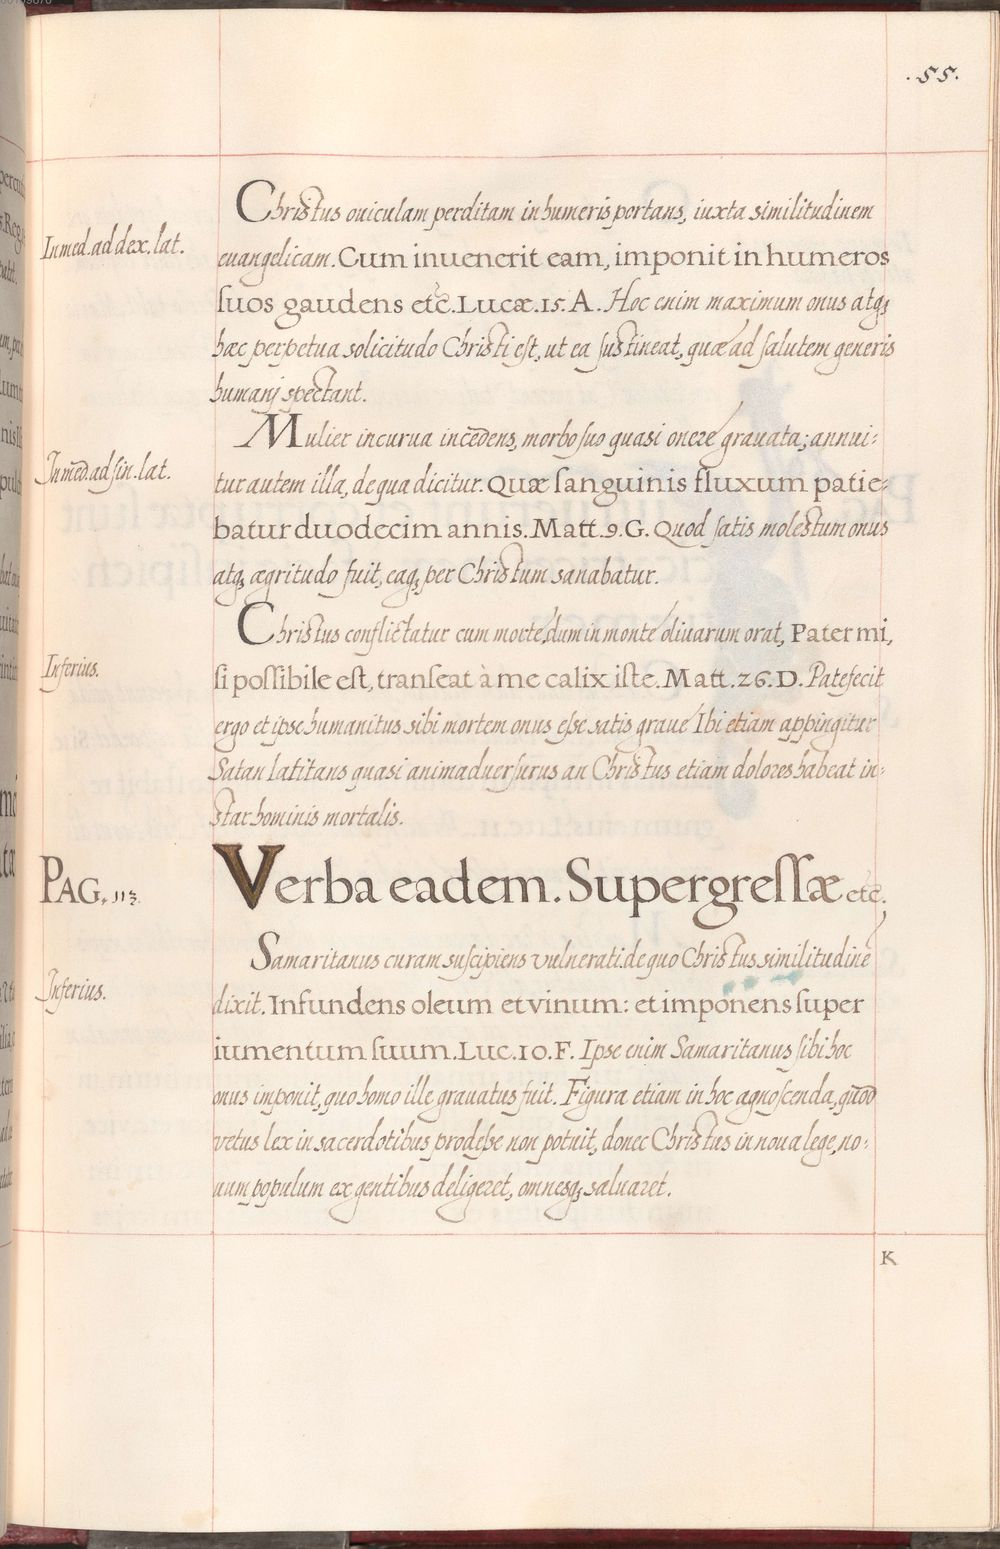 .55.
Christus ouiculam perditam in humeris portans, iuxta similitudinem
In med. ad dex. lat.
euangelicam. Cum inuenerit eam, imponit in humeros
ſuos gaudens etc̃. Lucæ. 15. A. Hoc enim maximum onus atq;
hæc perpetua solicitudo Christi est, ut ea ſustineat, quæ ad ſalutem generis
humanj spectant.
Mulier incurua incẽdens, morbo ſuo quasi onere grauata; annui:
In med. ad ſin. lat.
tur autem illa, de qua dicitur. Quæ ſanguinis fluxum patie:
batur duodecim annis. Matt. 9. G. Quod ſatis molestum onus
atq; ægritudo fuit, eaq; per Christum sanabatur.
Christus conflictatur cum morte, dum in monte oliuarum orat, Pater mi,
Inferius.
ſi poſſibile est, tranſeat à me calix iste. Matt. 26. D. Patefecit
ergo et ipse humanitus sibi mortem onus eſse satis graue Ibi etiam appingitur
Satan latitans quasi animaduerſurus an Christus etiam dolores habeat in:
star hominis mortalis.
PAG. 113.
Verba eadem. Supergreſſæ etc̃.
Samaritanus curam suſcipiens vulnerati. de quo Christus similitudinẽ
Inferius.
dixit. Infundens oleum et vinum: et imponens ſuper
iumentum ſuum. Luc. 10. F. Ipse enim Samaritanus ſibi hoc
onus imponit, quo homo ille grauatus fuit. Figura etiam in hoc agnoſcenda, quod
vetus lex in sacerdotibus prodeſse non potuit, donec Christus in noua lege, no:
uum populum ex gentibus deligeret, omnesq; saluaret.
K